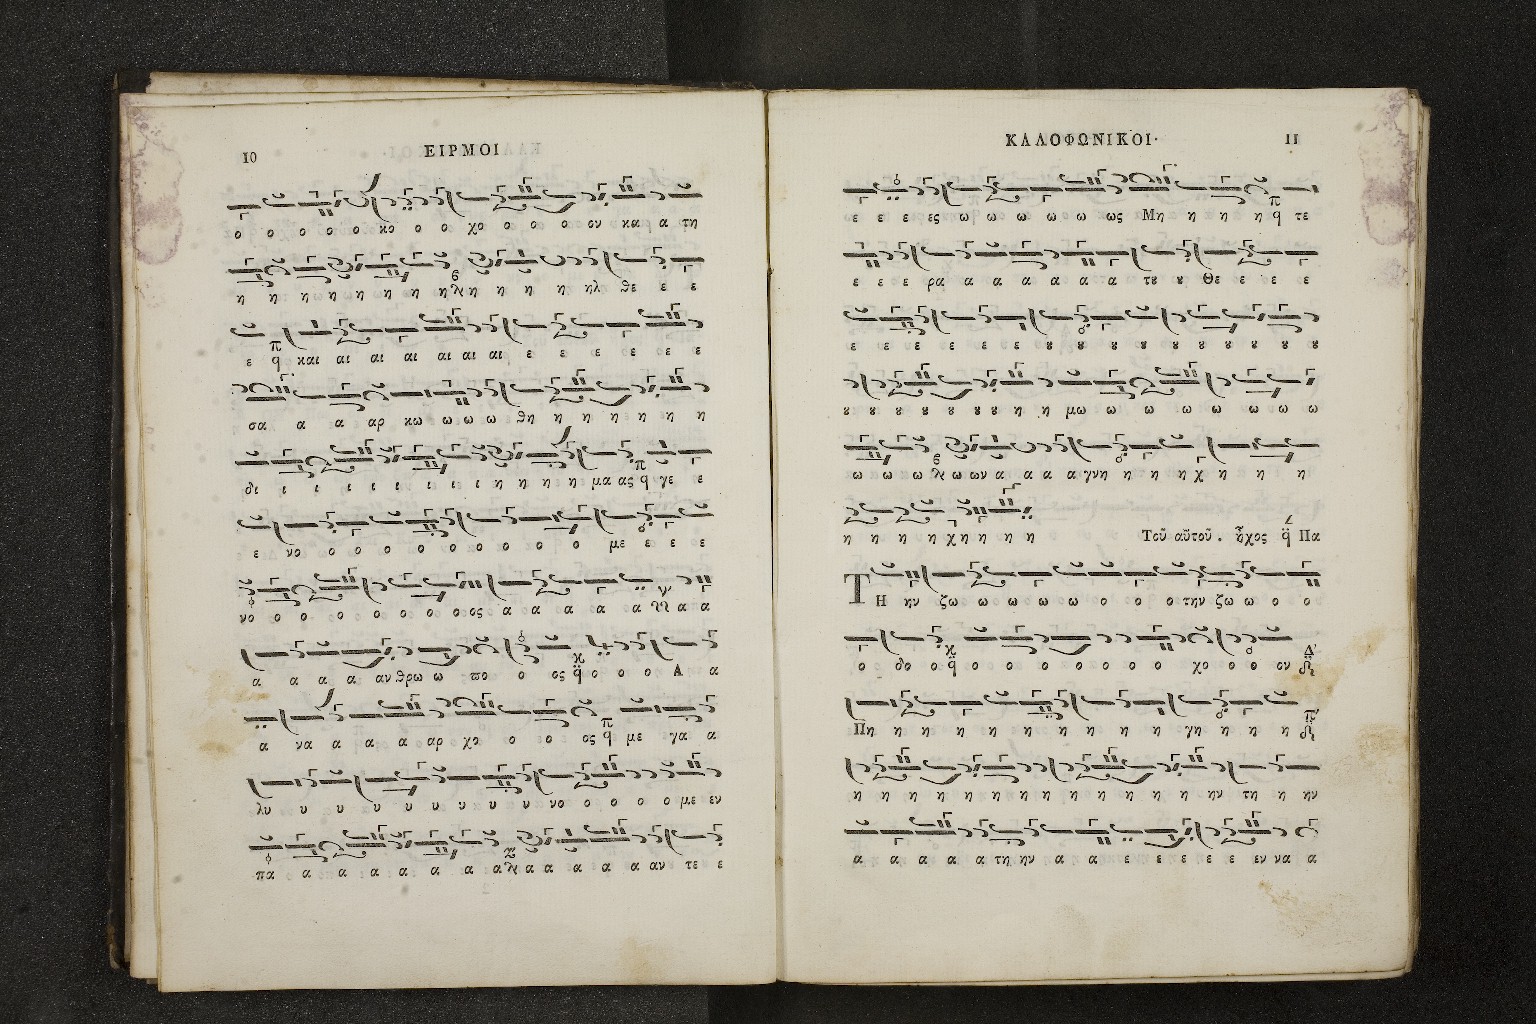 10
ΕΙΡΜΟΙ
ο ο ο ο ο κο ο ο χο ο ο ο ον και α τη
η η η η η η η η η η η η ηλ θε ε ε
ε και αι αι αι αι αι αι ε ε ε ε ε ε
σα α α αρ κω ω ω ω θη η η η η η η
δι ι ι ι ι ι ι ι ι η η η η μα ας γε ε
ε νο ο ο ο ο ο ο ο ο ο με ε ε ε
νο ο ο ο ο ο ο οος α α α α α α α
α α α α αν θρω ω πο ο ος ο ο ο Α α
α να α α α αρ χο ο ο ος με γα α
λυ υ υ υ υ υ υ υ υ νο ο ο ο ο με εν
πα α α α α α α α α α α α α αν τε ε
ΚΑΛΟΦΩΝΙΚΟΙ·
11
ε ε ε ες ω ω ω ω ω ως Μη η η η τε
ε ε ε ρα α α α α α α τȣ ȣ Θε ε ε ε
ε ε ε ε ε ε ȣ ȣ ȣ ȣ ȣ ȣ ȣ ȣ ȣ
ȣ ȣ ȣ ȣ ȣ ȣ ȣ η η μω ω ω ω ω ω ω ω
ω ω ω ω ων α α α α γνη η η η χη η η η
η η η η χη η η η
Τοῦ αὐτοῦ. ἦχος Πα
ΤΗ ην ζω ω ω ω ω ο ο ο την ζω ω ο ο
ο δο ο ο ο ο ο ο ο ο χο ο ο ον
Πη η η η η η η η η η γη η η η
η η η η η η η η η η η η η ην τη η ην
α α α α α τη ην α α ε ε ε ε ε εν να α